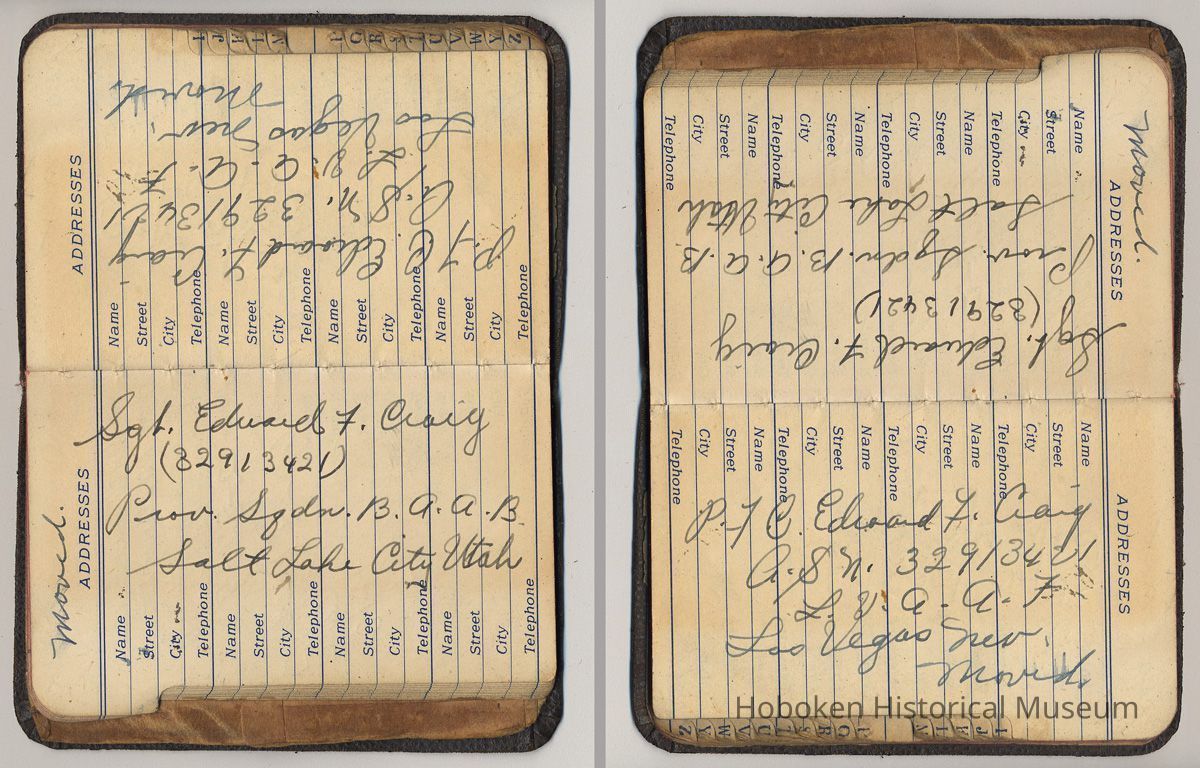 Moved.
ADDRESSES
Sgt. Edward F. Craig
(32913421)
Prov. Sqdn. B. A. A. B.
Salt Lake City Utah
Name
Street
City
Telephone
Name
Street
City
Telephone
Name
Street
City
Telephone
Name
Street
City
Telephone
ADDRESSES
Edward F. Craig
A.S.N. 32913421
L.V. A. A. F.
Las Vegas Nev.
Moved
Name
Street
City
Telephone
Name
Street
City
Telephone
Name
Street
City
Telephone
Name
Street
City
Telephone
Moved.
ADDRESSES
Sgt. Edward F. Craig
(32913421)
Prov. Sqdn. B. A. A. B.
Salt Lake City Utah
Name
Street
City
Telephone
Name
Street
City
Telephone
Name
Street
City
Telephone
Name
Street
City
Telephone
ADDRESSES
Edward F. Craig
A.S.N. 32913421
L.V. A. A. F.
Las Vegas Nev.
Moved
Name
Street
City
Telephone
Name
Street
City
Telephone
Name
Street
City
Telephone
Name
Street
City
Telephone
Hoboken Historical Museum